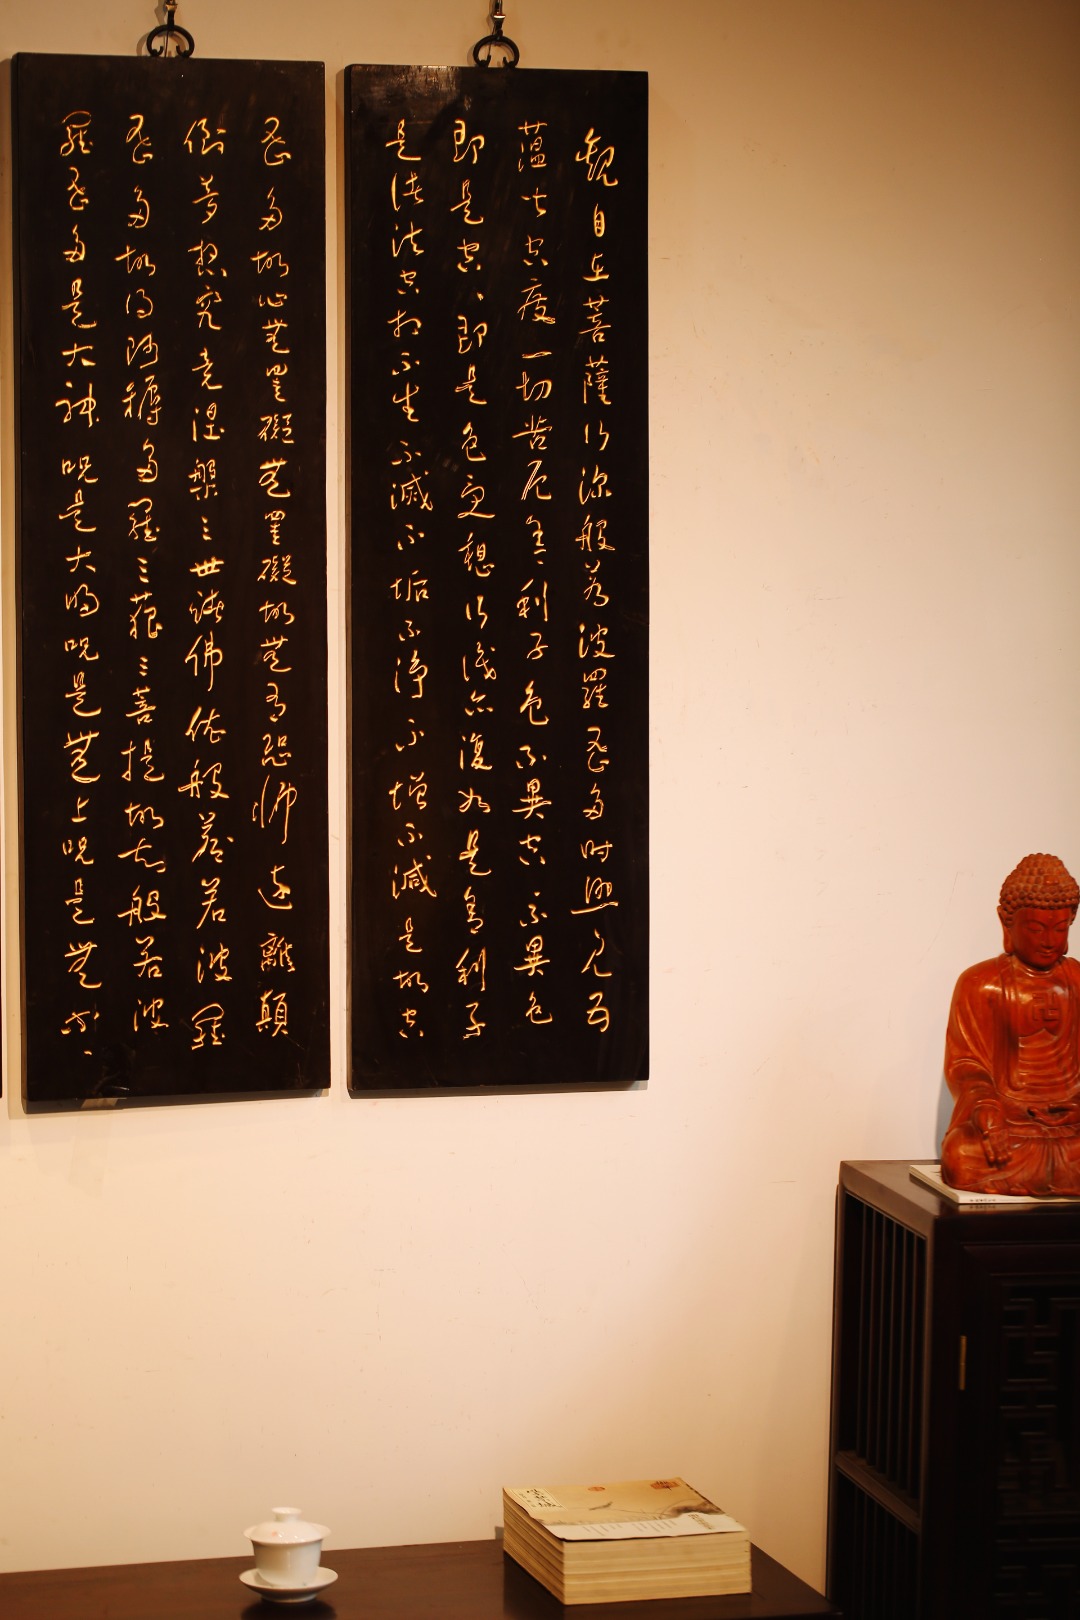 觀自在菩薩行深般若波羅蜜多時照見五
蘊皆空度一切苦厄舍利子色不異空不異色
即是空、即是色受想行識亦復如是舍利子
是諸法空相不生不滅不垢不淨不增不減是故空
蜜多故心無罣礙無罣礙故無有恐怖遠離顛
倒夢想究竟涅槃三世諸佛依般若波羅
蜜多故得阿耨多羅三藐三菩提故知般若波
羅蜜多是大神呪是大明呪是無上呪是無等、